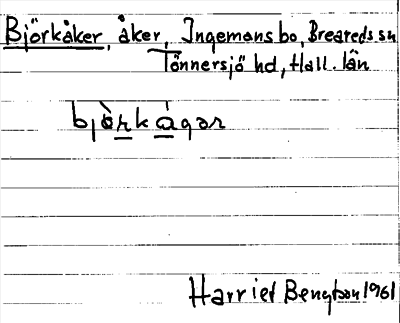 Björkåker, åker, Ingemansbo, Breareds sn
Tönnersjö hd, Hall. län
bjòrkágər
Harriet Bengtson 1961